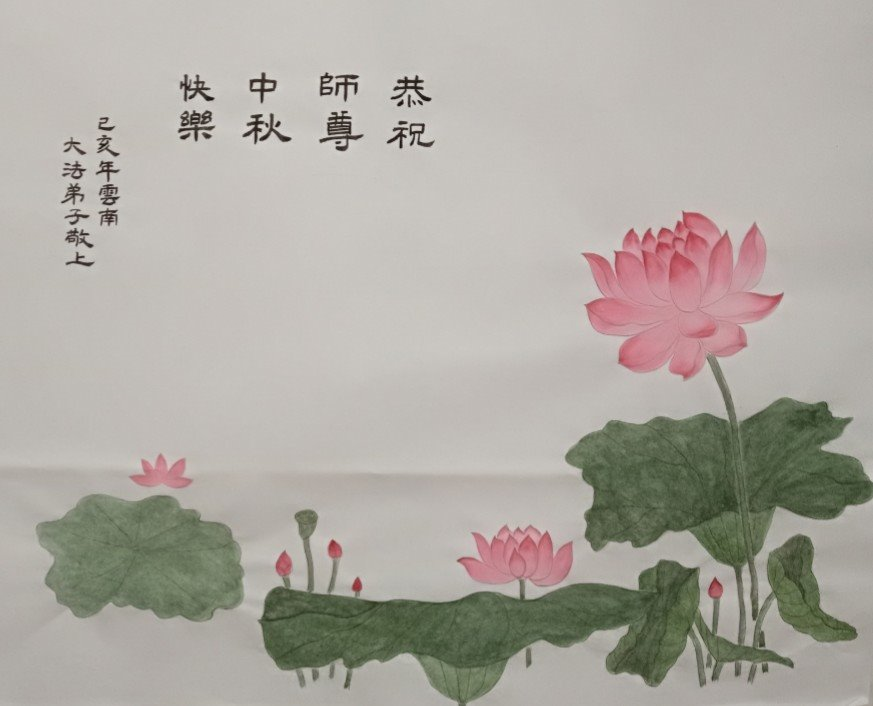 恭祝
師尊
中秋
快樂
己亥年雲南
大法弟子敬上